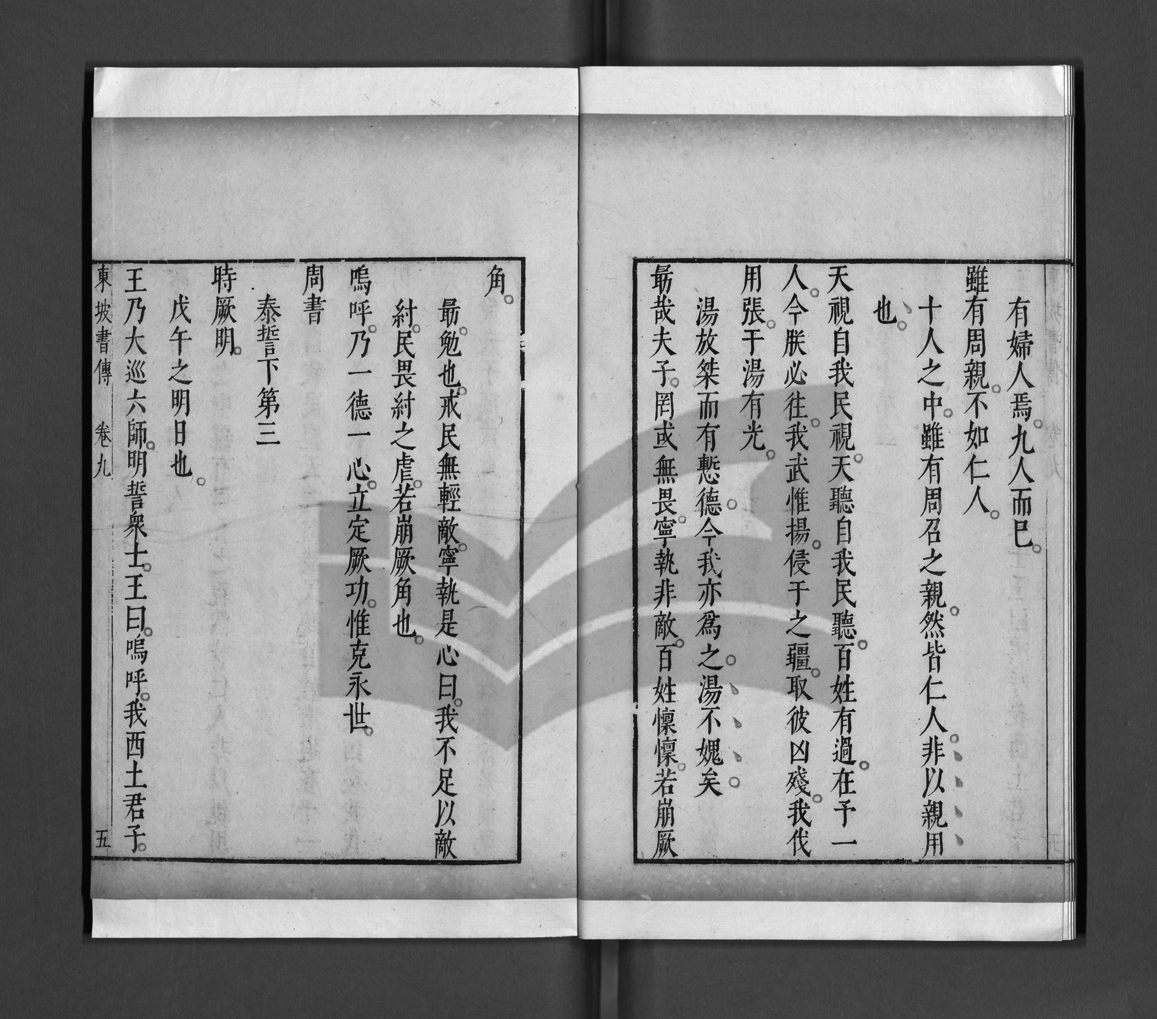 有婦人焉。九人而已。
雖有周親。不如仁人。
十人之中。雖有周召之親。然皆仁人。非以親用
也。
天視自我民視。天聽自我民聽。百姓有過。在予一
人。今朕必往。我武惟揚。侵于之疆。取彼凶殘。我伐
用張。于湯有光。
湯放桀而有慙德。今我亦爲之。湯不媿矣。
勗哉夫子。罔或無畏。寧執非敵。百姓懍懍。若崩厥
角。
勗。勉也。戒民無輕敵。寧執是心曰。我不足以敵
紂。民畏紂之虐。若崩厥角也。
嗚呼。乃一德一心。立定厥功。惟克永世。
周書
泰誓下第三
時厥明。
戊午之明日也。
王乃大巡六師。明誓衆士。王曰。嗚呼。我西土君子。
東坡書傳 卷九 五